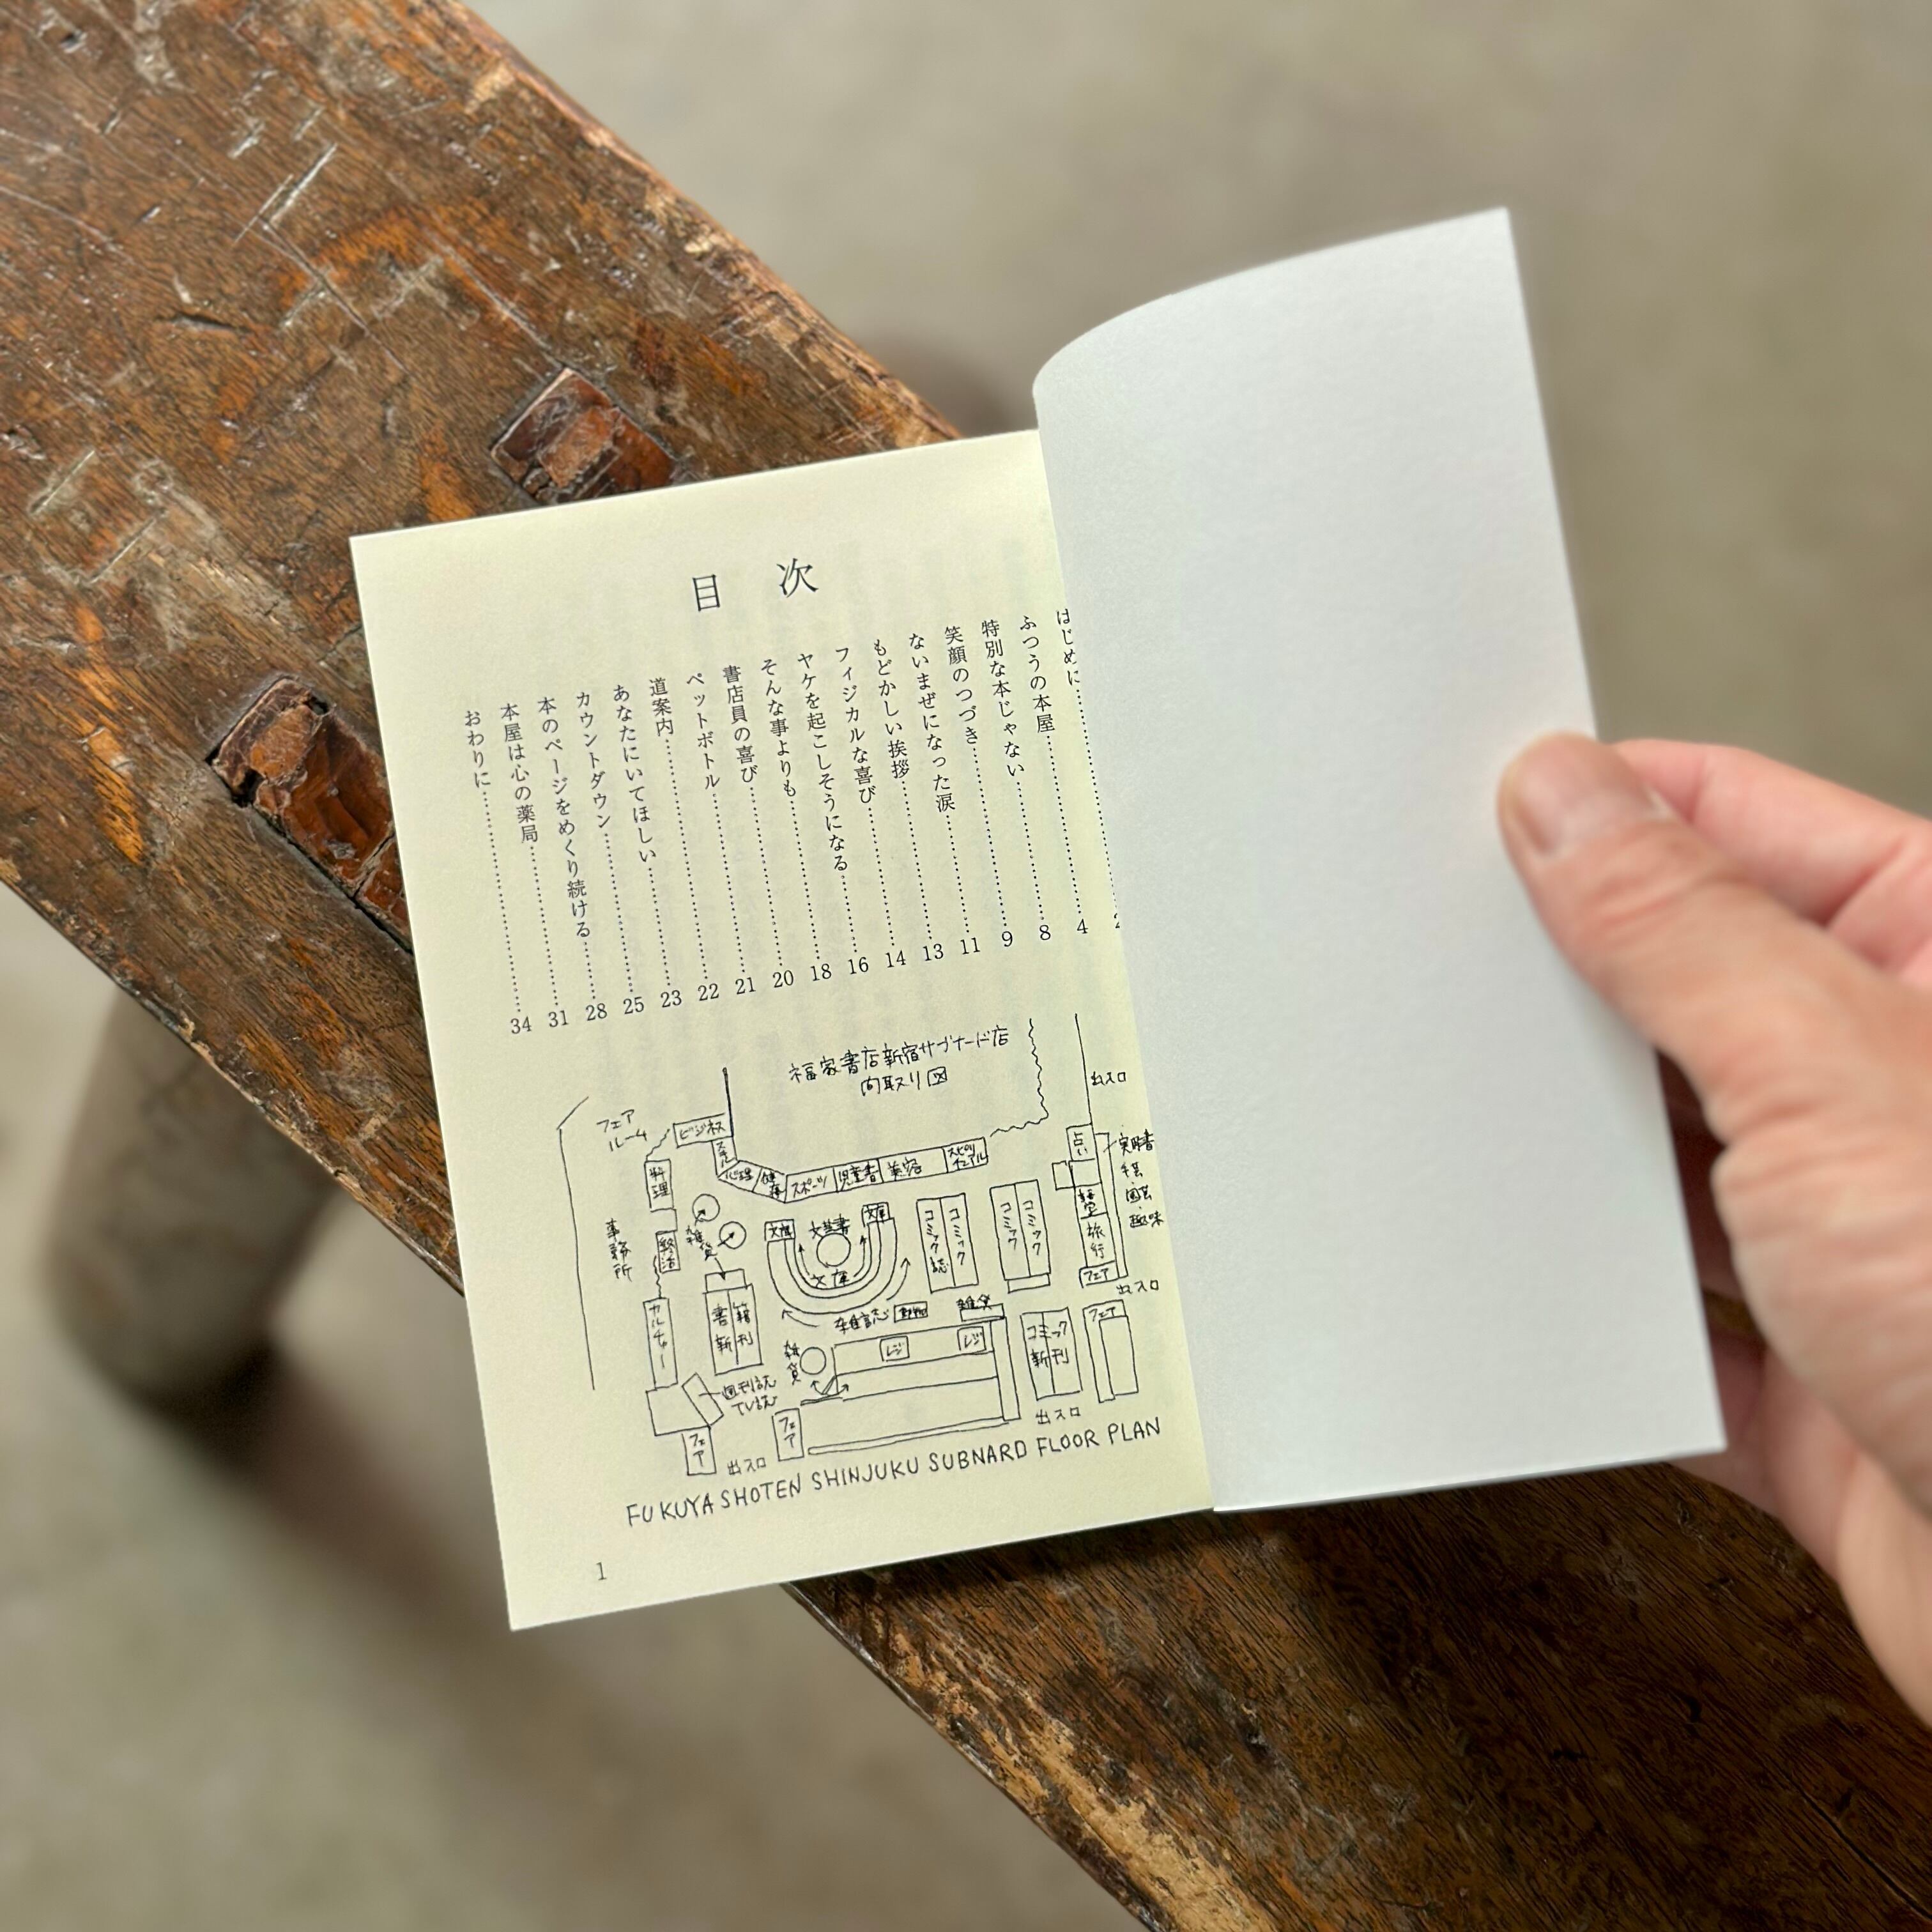 目次
はじめに…………2
ふつうの本屋…………4
特別な本じゃない…………8
笑顔のつづき…………9
ないまぜになった涙…………11
もどかしい挨拶…………13
フィジカルな喜び…………14
ヤケを起こしそうになる…………16
そんな事よりも…………18
書店員の喜び…………20
ペットボトル…………21
道案内…………22
あなたにいてほしい…………23
カウントダウン…………25
本のページをめくり続ける…………28
本屋は心の薬局…………31
おわりに…………34
福家書店新宿サブナード店
間取り図
出入口
フェア
ルーム
ビジネス
心理
健康
スポーツ
児童書
美容
スピリ
チュアル
占い
実用書
手芸
園芸
趣味
料理
雑貨
文庫
文芸書
文庫
文庫
コミック誌
コミック
コミック
コミック
旅行
フェア
出入口
事務所
終活
カルチャー
書籍
新刊
雑誌
雑貨
雑貨
レジ
レジ
コミック
新刊
フェア
週刊誌
TV誌
フェア
フェア
出入口
出入口
FUKUYA SHOTEN SHINJUKU SUBNARD FLOOR PLAN
1